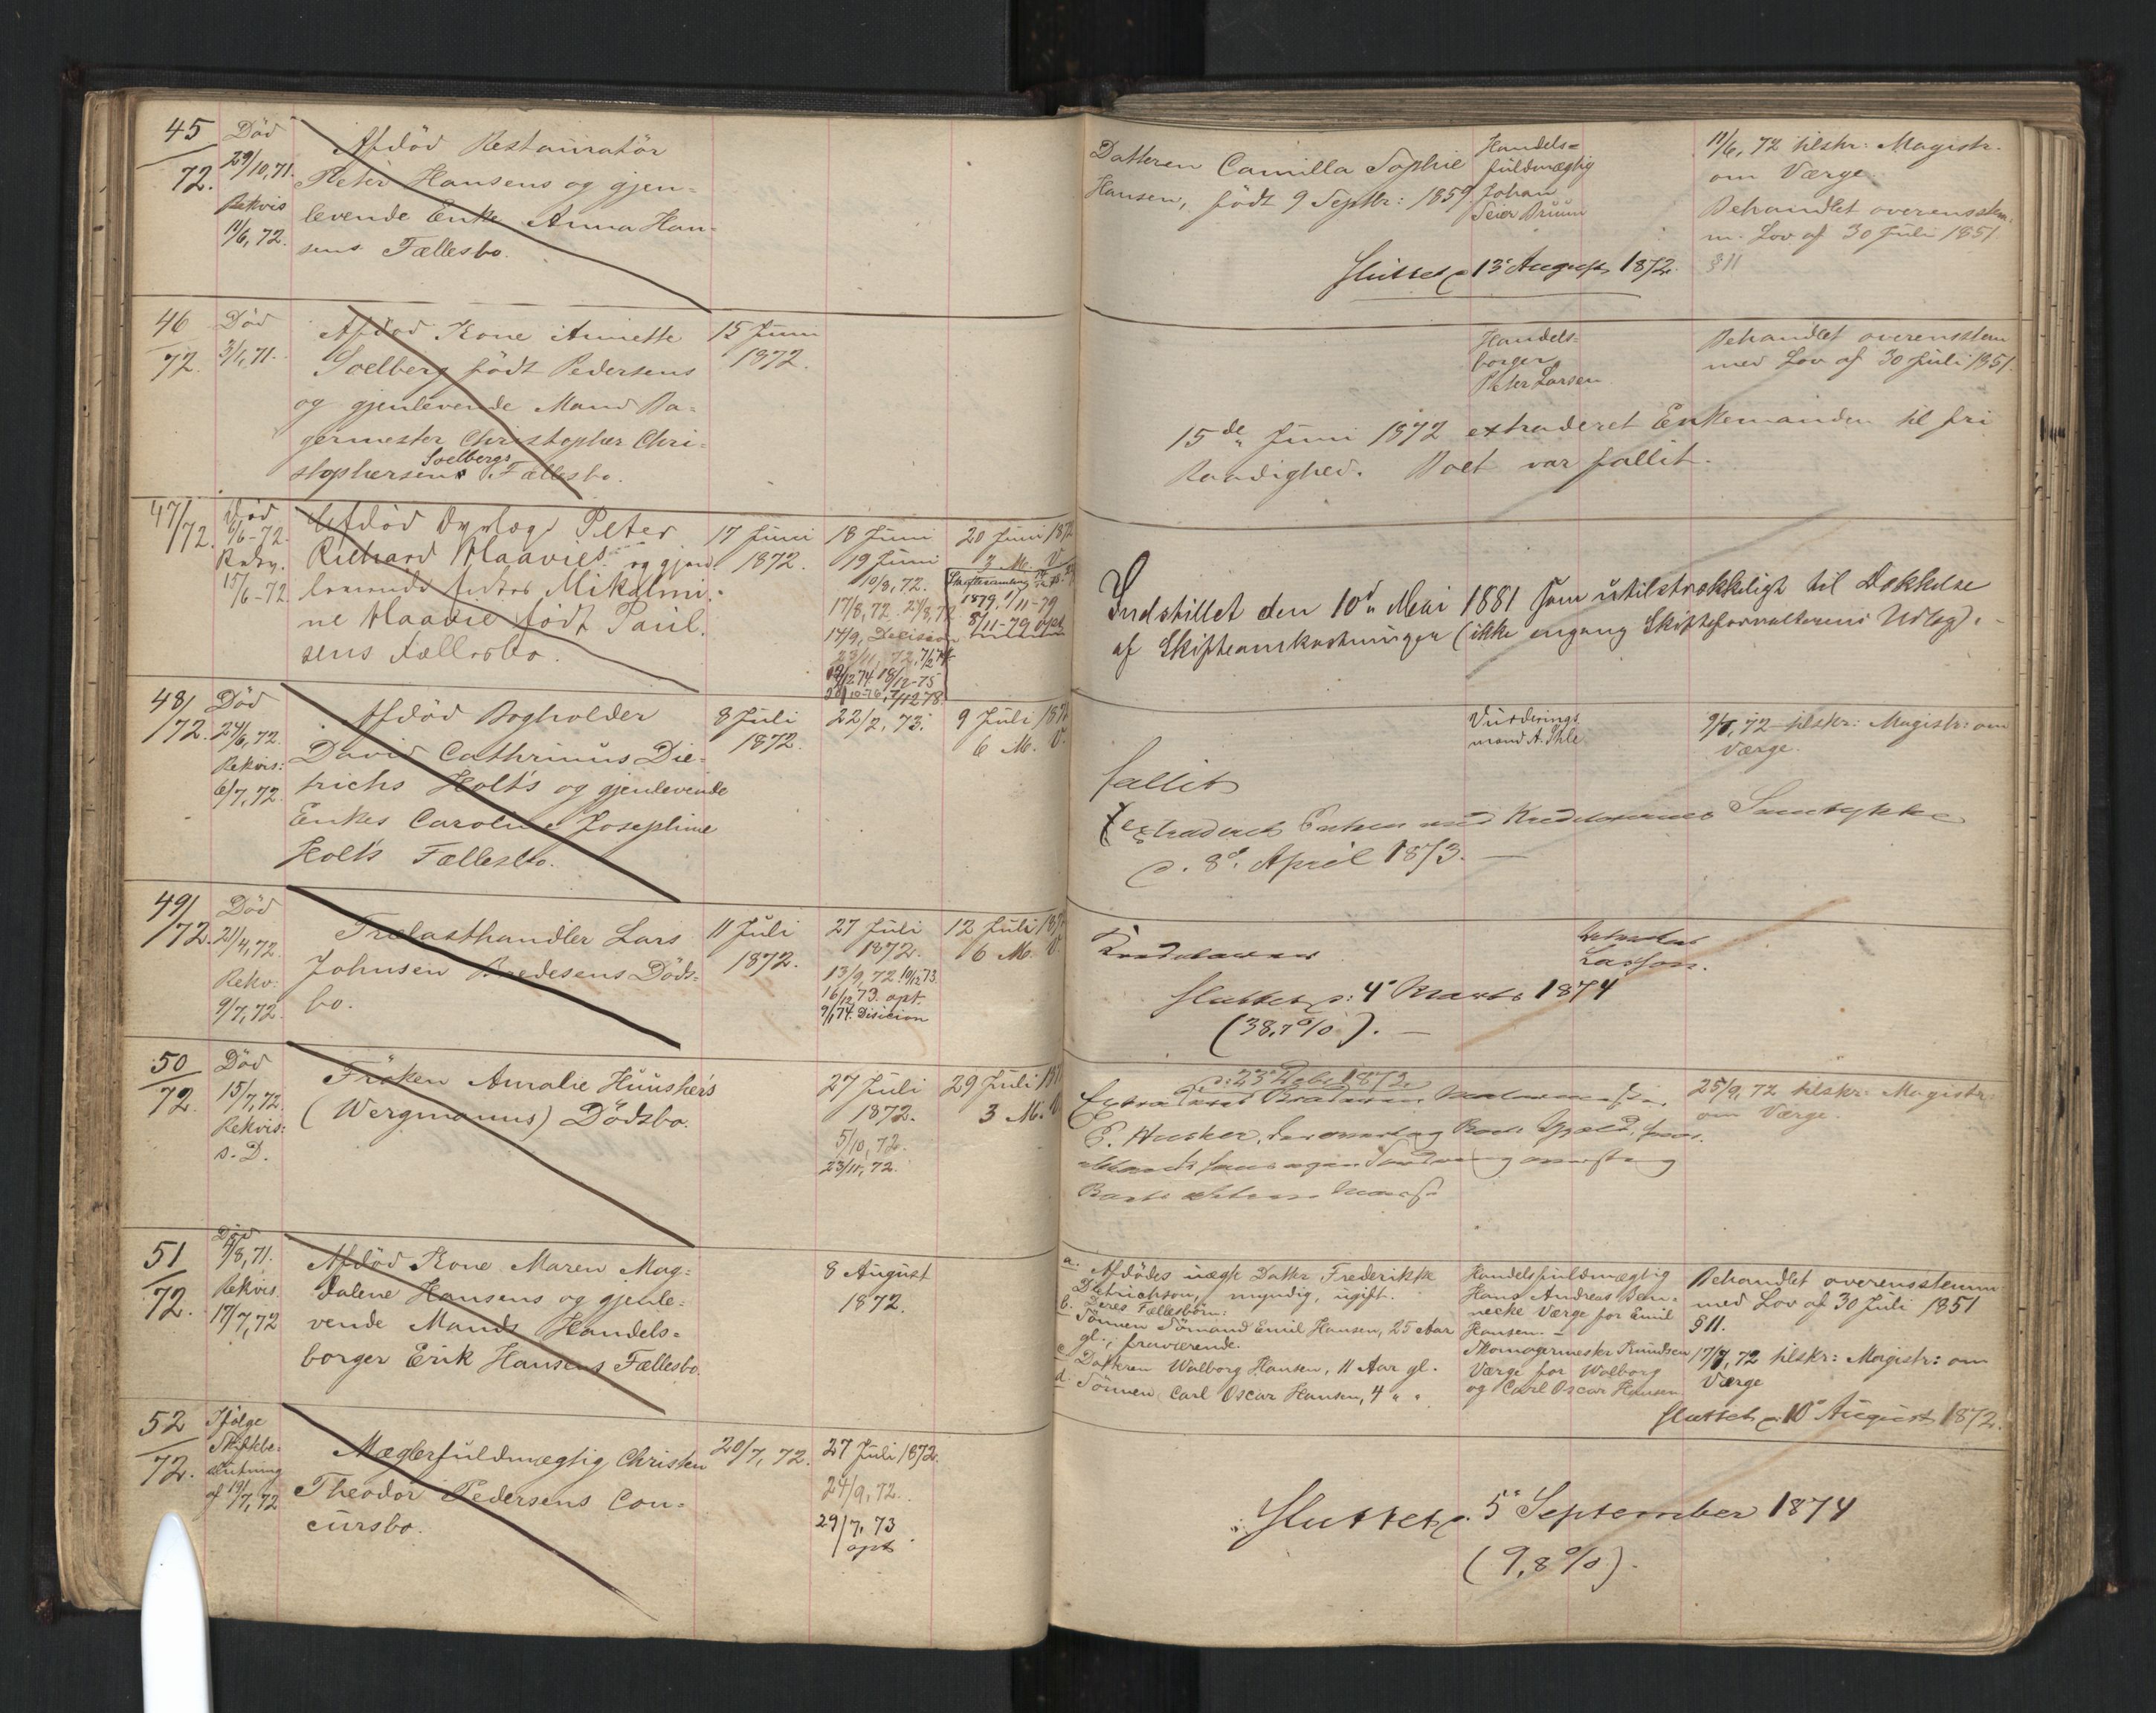 45
72.
Död
29/10, 71.
Rekvis
11/6, 72.
Afdöd Restauratör
Peter Hansens og gjen=
levende Enke Anna Han=
sens Fællesbo.
Datteren Camilla Sophie
Hansen, födt 9 Septbr: 1859
Handels=
fuldmægtig
Johan
Seier Bruun
11/6, 72 tilskr: Magistr.
om Værge
Behandlet overensstem.
m. Lov af 30 Juli 1851
§ 11
Sluttet d 13 August 1872.
46
72.
Död
3/1, 71.
Afdöd Kone Annette
Soelberg födt Pedersens
og gjenlevende Mand Ba=
germester Christopher Chri=
stophersens Soelbergs Fællesbo.
15 Juni
1872.
Handels-
borger
Peter Larsen
Behandlet overensstem
med Lov af 30 Juli 1851.
15de Juni 1872 extraderet Enkemanden til fri
Raadighed. Boet var fallit.
47/
72.
Död
6/6-72.
Rekv.
15/6-72
Afdöd Dyrlæge Peter
Richard Haavies og gjen=
levende Enkes Mikalmi=
ne Haavie födt Paul.
sens Fællesbo.
17 Juni
1872.
18 Juni
19 Juni
10/8, 72.
17/8, 72.
14/9, Decision
23/11, 72,
20 Juni 1872
3 M. V
1879, 1/11-79
8/11-79 opt
Indstillet den 10d Mai 1881 som utilstrækkeligt til Dækkelse
af Skifteomkostninger (ikke engang Skifteforvalterens Udlæg).
48/
72.
Död
24/6, 72.
Rekvis:
6/7, 72.
Afdöd Bogholder
David Cathrinus Die=
trichs Holt's og gjenlevende
Enkes Caroline Josephine
Holts Fællesbo.
8 Juli
1872.
22/2, 73.
9 Juli 1872
6 M. V.
Vurderings
mand A. Ihle
9/7, 72 tilskr: Magistr: om
Værge.
fallit
extraderet Enken med Kreditorernes Samtykke
d. 8d April 1873.
49/
72.
Död
21/4, 72.
Rekv:
9/7, 72.
Trælasthandler Lars
Johnsen Bredesens Döds=
bo.
11 Juli
1872.
27 Juli
1872.
13/9, 72. 10/12 73.
16/12 73. opt.
9/1 74. Disicion
12 Juli 1872
6 M. V.
Larsson.
Sluttet d: 4 Marts 1874
(38,7 %).
50
72.
Död
15/7, 72.
Rekvis:
s. D.
Fröken Amalie Huusher's
(Wergmanns) Dödsbo.
27 Juli
1872.
5/10, 72.
23/11, 72.
29 Juli 1872
3 M. V.
d: 23 Debr 1872
E. Husher,
25/9, 72 tilskr: Magistr:
om Værge.
51
72.
Död
4/8, 71.
Rekvis.
17/7, 72
Afdöd Kone Maren Mag=
dalene Hansens og gjenle=
vende Mands Handels=
borger Erik Hansens Fællesbo.
8 August
1872.
a. Afdödes uægte Datter Frederikke
Dietrichson, myndig, ugift.
Deres Fællesbörn:
b. Sönnen Sömand Emil Hansen, 25 Aar
gl., fraværende.
c Datteren Walborg Hansen, 11 Aar gl.
d. Sönnen Carl Oscar Hansen, 4 " "
Handelsfuldmægtig
Hans Andreas Ben=
necke Værge for Emil
Hansen. -
Skomagermester Knudsen
Værge for Walborg
og Carl Oscar Hansen.
Behandlet overensstemm
med Lov af 30 Juli 1851
§ 11.
17/7, 72 tilskr: Magistr: om
Værge
Sluttet d: 10 August 1872.
52
72.
Ifölge
Skiftebe=
slutning
af 19/7, 72
Mæglerfuldmægtig Christen
Theodor Pedersens Con=
cursbo.
20/7, 72.
27 Juli 1872.
24/9, 72.
29/7, 73
opt
Sluttet d. 5 September 1874
(9,8 %).